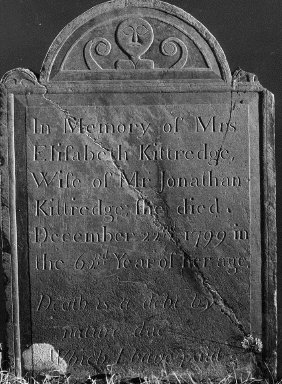 In Memory of Mrs
Eliſabeth Kittredge,
Wife of Mr Jonathan
Kittredge; ſhe died
December 1799 in
the Year of her age
Death is a debt
nature due
Which I have paid